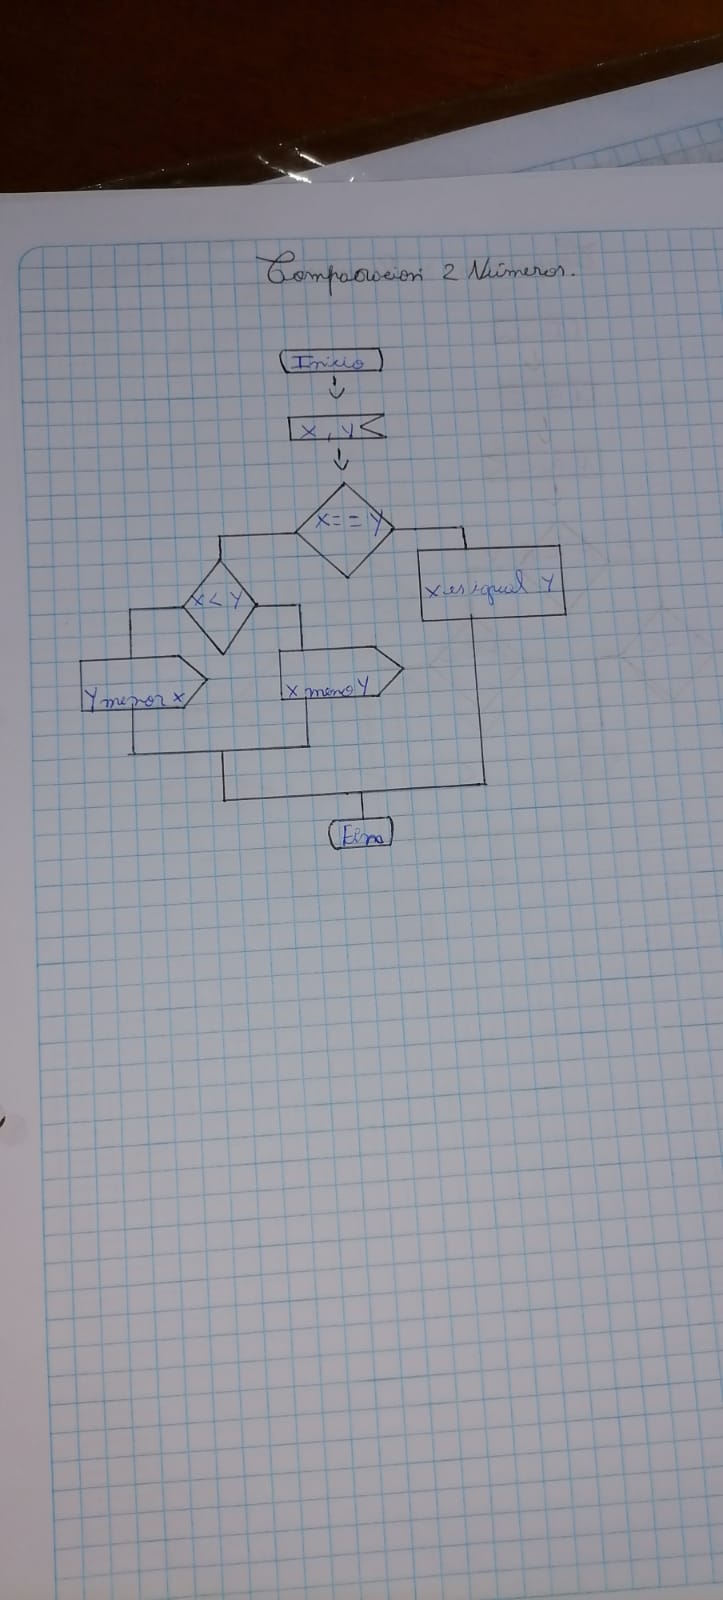 Comparacion 2 Números.
Inicio
x, y
x==y
x < y
x es igual y
y menor x
x meno y
Fin